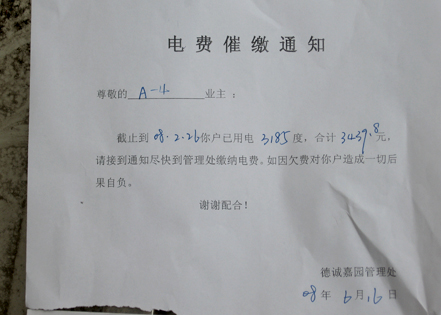 电费催缴通知
尊敬的 A-16 业主：
截止到 08.2.26 你户已用电 3185 度，合计 3439.8 元，
请接到通知尽快到管理处缴纳电费。如因欠费对你户造成一切后
果自负。
谢谢配合！
德诚嘉园管理处
08 年 6 月 16 日